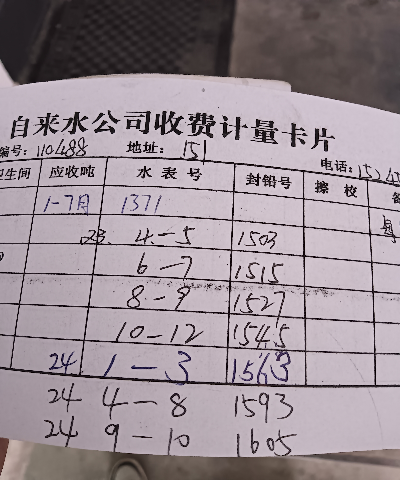 自来水公司收费计量卡片
编号：110488 地址：151 电话：15245
卫生间 应收吨 水表号 封铅号 擦校 备
1-7月 1371
23 4-5 1503
6-7 1515
8-9 1527
10-12 1545
24 1-3 1563
24 4-8 1593
24 9-10 1605